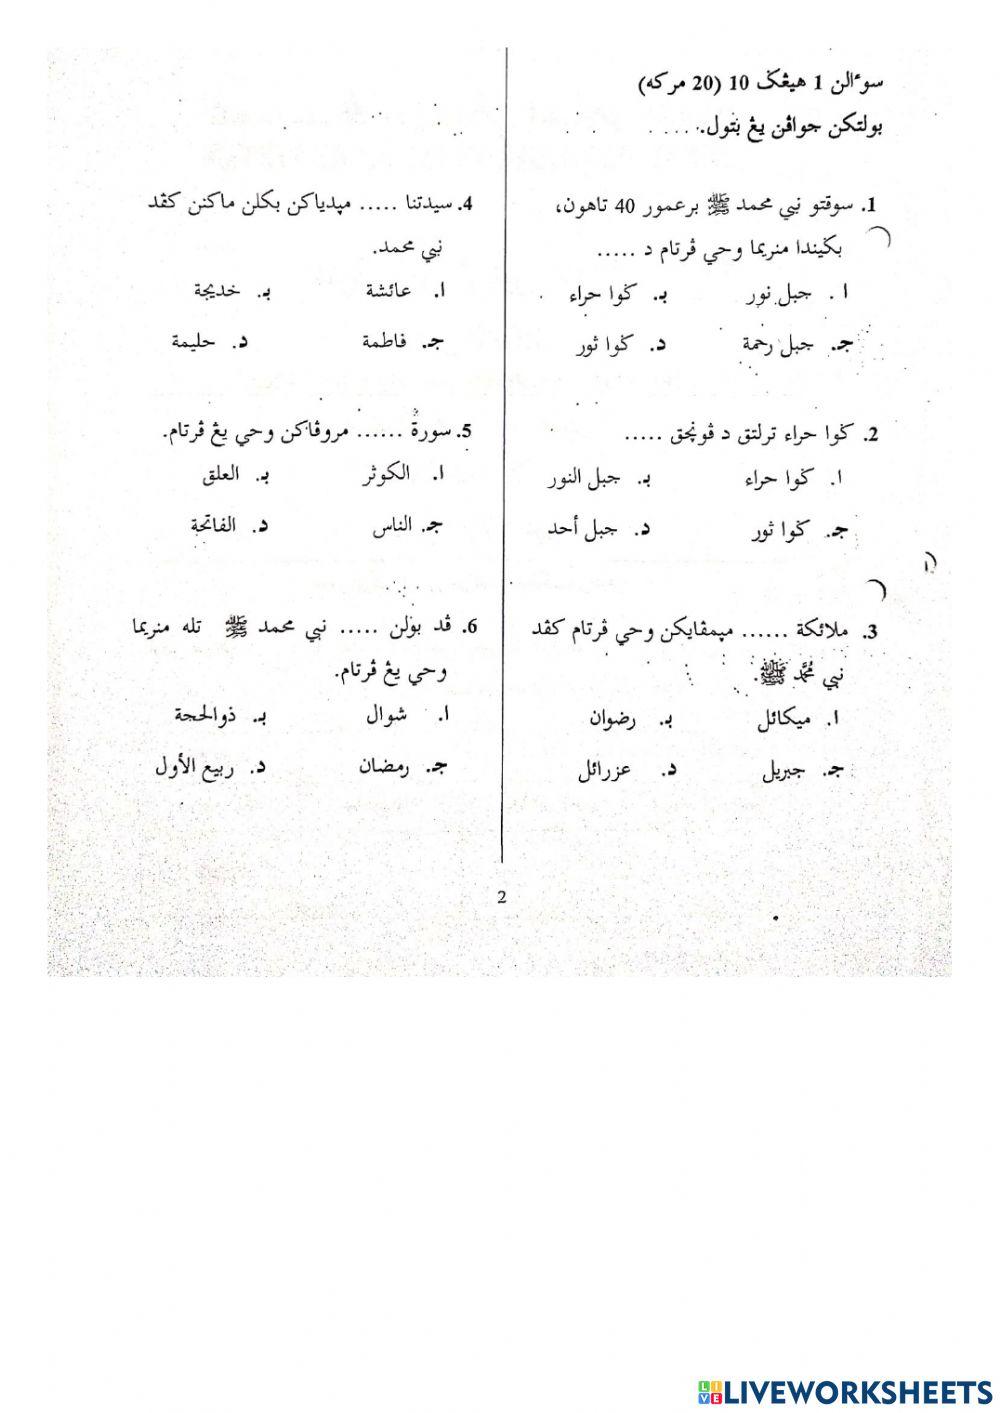 سوءالن 1 هيڠݢ 10 (20 مركه)
بولتكن جواڤن يڠ بتول.
1. سوقتو نبي محمد ﷺ برعمور 40 تاهون،
بݢيندا منريما وحي ڤرتام د .....
ا. جبل نور ب. ݢوا حراء
ج. جبل رحمة د. ݢوا ثور
2. ݢوا حراء ترلتق د ڤونچق .....
ا. ݢوا حراء ب. جبل النور
ج. ݢوا ثور د. جبل أحد
3. ملائكة ...... مڽمڤايكن وحي ڤرتام كڤد
نبي محمّد ﷺ.
ا. ميكائل ب. رضوان
ج. جبريل د. عزرائل
4. سيدتنا ..... مڽدياكن بكلن ماكنن كڤد
نبي محمد.
ا. عائشة ب. خديجة
ج. فاطمة د. حليمة
5. سورة ...... مروڤاكن وحي يڠ ڤرتام.
ا. الكوثر ب. العلق
ج. الناس د. الفاتحة
6. ڤد بولن ..... نبي محمد ﷺ تله منريما
وحي يڠ ڤرتام.
ا. شوال ب. ذوالحجة
ج. رمضان د. ربيع الأول
2
LIVEWORKSHEETS